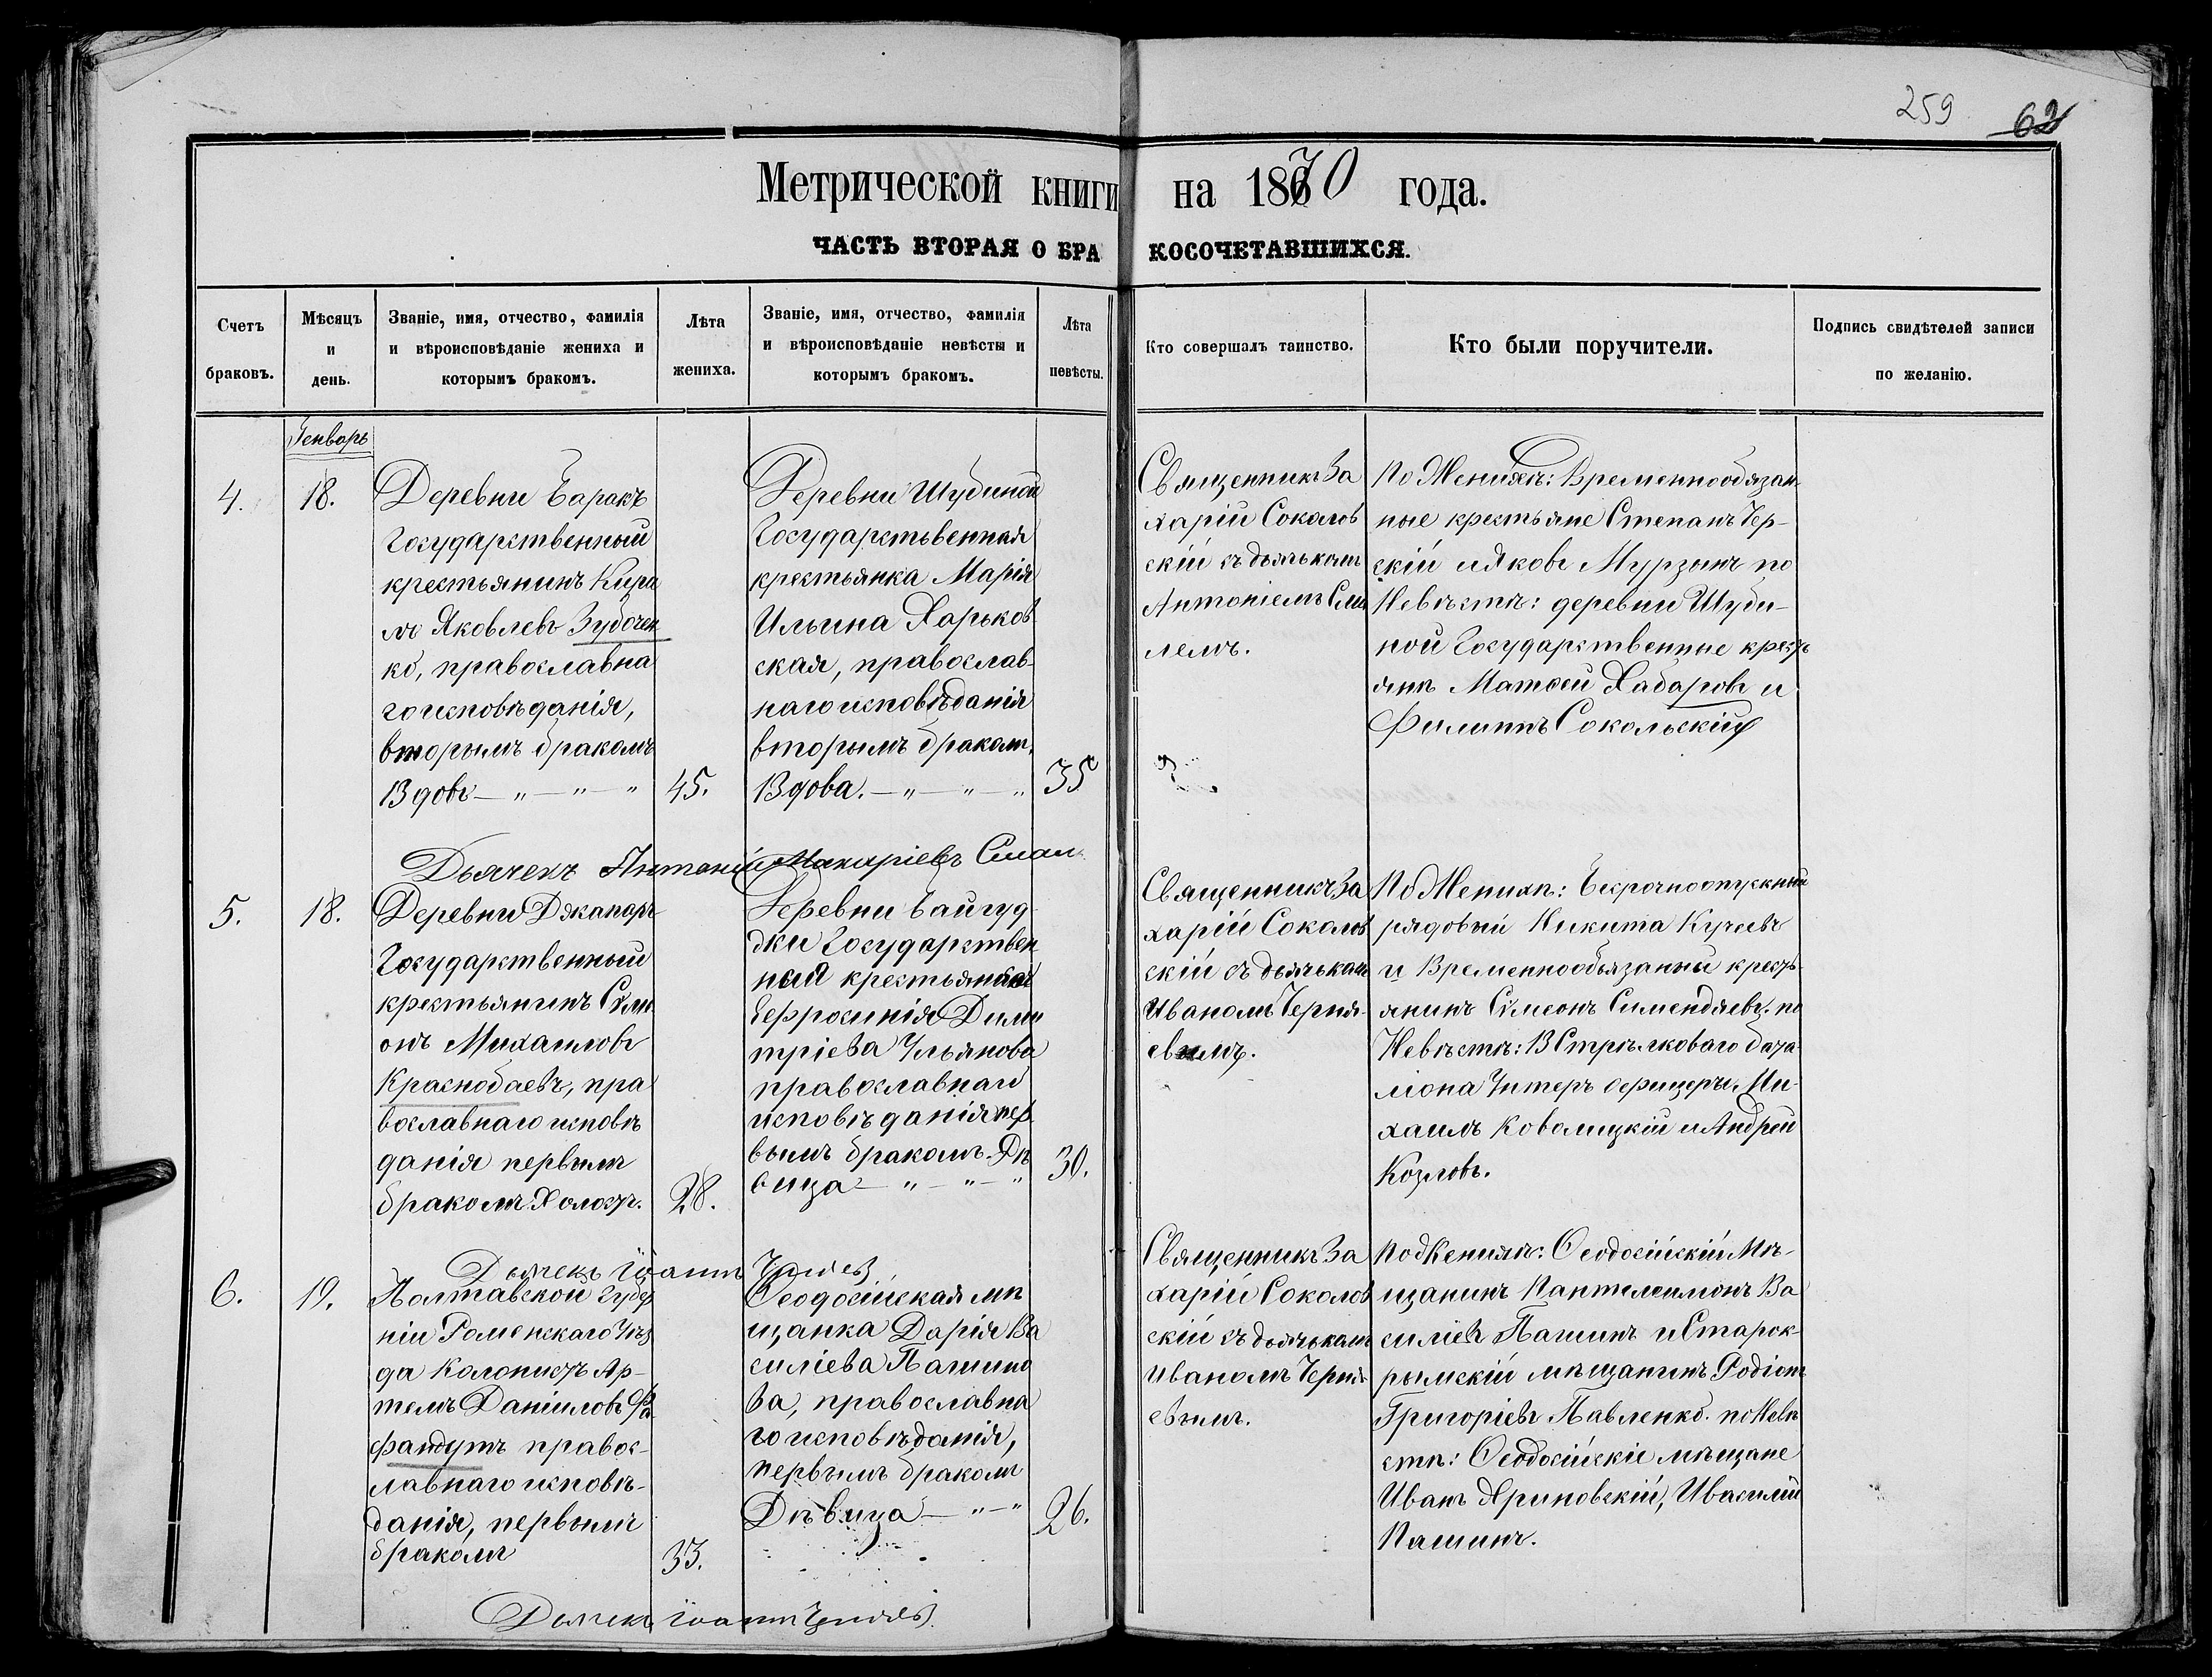 259 62
Метрической книги на 1870 года.
ЧАСТЬ ВТОРАЯ О БРАКОСОЧЕТАВШИХСЯ.
Счетъ
браковъ.
Мѣсяцъ
и
день.
Званіе, имя, отчество, фамилія
и вѣроисповѣданіе жениха и
которымъ бракомъ.
Лѣта
жениха.
Званіе, имя, отчество, фамилія
и вѣроисповѣданіе невѣсты и
которымъ бракомъ.
Лѣта
невѣсты.
Кто совершалъ таинство.
Кто были поручители.
Подпись свидѣтелей записи
по желанію.
Генварь
4.
18.
Деревни Баракъ
Государственный
крестьянинъ Кири
лъ Яковлевъ Зубочен
ко, православна
го исповѣданія,
вторымъ бракомъ
Вдовъ — „ — „ — „
45.
Деревни Шубиной
Государственная
крестьянка Марія
Ильина Харьков
ская, православ-
наго исповѣданія
вторымъ бракомъ,
Вдова. — „ — „ — „
35
Священникъ За
харій Соколов
скій съ дьячькомъ
Антоніемъ
лемъ.
По Женихѣ: Временнообязан
ные крестьяне Степанъ Чер-
скій и Яковъ Мурзинъ по
Невѣстѣ: деревни Шуби-
ной Государственные кресть
яне Матѳей Хабаровъ и
Филиппъ Сокольскій
Дьячекъ Антоній Макаріевъ
5.
18.
Деревни Джапаръ-
Государственный
крестьянинъ Сѵме
онъ Михаиловъ
Краснобаевъ, пра
вославнаго исповѣ
данія первымъ
бракомъ Холостъ.
28.
Деревни Байгуд-
жи Государствен
ная крестьянка
Ефросинія Дими
тріева Ульянова
православнаго
исповѣданія пер
вымъ бракомъ. Дѣ
вица — „ — „ — „
30.
Священникъ За
харій Соколов
скій съ дьячькомъ
Иваномъ Черня-
евымъ.
По Женихѣ: Безсрочноотпускный
рядовый Никита Кучеевъ
и Временнообязанный кресть-
янинъ Сѵмеонъ Симендяевъ. по
Невѣстѣ: В Стрѣлковаго бата-
ліона Унтеръ офицеры Ми-
хаилъ Ковалицкій и Андрей
Козловъ.
Дьячекъ Іоаннъ Черняев
6.
19.
Полтавской губер
ніи Роменскаго Уѣз
да Колонистъ Ар-
темъ Даніиловъ
правос-
лавнаго исповѣ-
данія, первымъ
бракомъ
33.
Ѳеодосійская мѣ
щанка Дарія Ва
силіева Пашино
ва, православна
го исповѣданія,
первымъ бракомъ
Дѣвица — „ — „
26.
Священникъ За
харій Соколов
скій съ дьячькомъ
Иваномъ Черня-
евымъ.
По Женихѣ: Ѳеодосійскій Мѣ-
щанинъ Пантелеимонъ Ва
силіевъ Пашинъ и Старок-
рымскій мѣщанинъ Родіонъ
Григоріевъ Павленко. по Невѣ
стѣ: Ѳеодосійскіе мѣщане
Иванъ Яриновскій, И Василий
Пашинъ.
Дьячекъ Іоаннъ Черняев